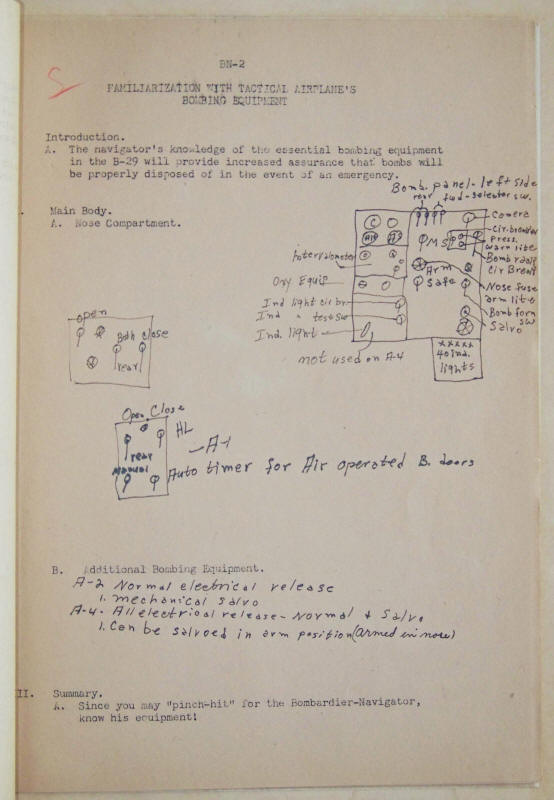 BN-2
FAMILIARIZATION WITH TACTICAL AIRPLANE'S
BOMBING EQUIPMENT
Introduction.
A. The navigator's knowledge of the essential bombing equipment
in the B-29 will provide increased assurance that bombs will
be properly disposed of in the event of an emergency.
Bomb. panel - left side
rear fwd - selector sw.
Main Body.
A. Nose Compartment.
C
Camera
Cir. breaker
press.
warn lite
Intervalometer
Bomb
Cir Break
Arm
Safe
Oxy Equip
Nose fuse
arm lite
Ind light cir br.
Ind " test sw
Bomb form
sw
Salvo
Ind. light
not used on A-4
xxxxx
40 ind.
lights
open
Both close
rear
Open Close
HL
rear
manual
A-1
Auto timer for Air operated B. doors
B. Additional Bombing Equipment.
A-2 Normal electrical release
1. mechanical salvo
A-4 - All electrical release - Normal & Salvo
1. Can be salvoed in arm position (armed in nose)
II. Summary.
A. Since you may "pinch-hit" for the Bombardier-Navigator,
know his equipment!